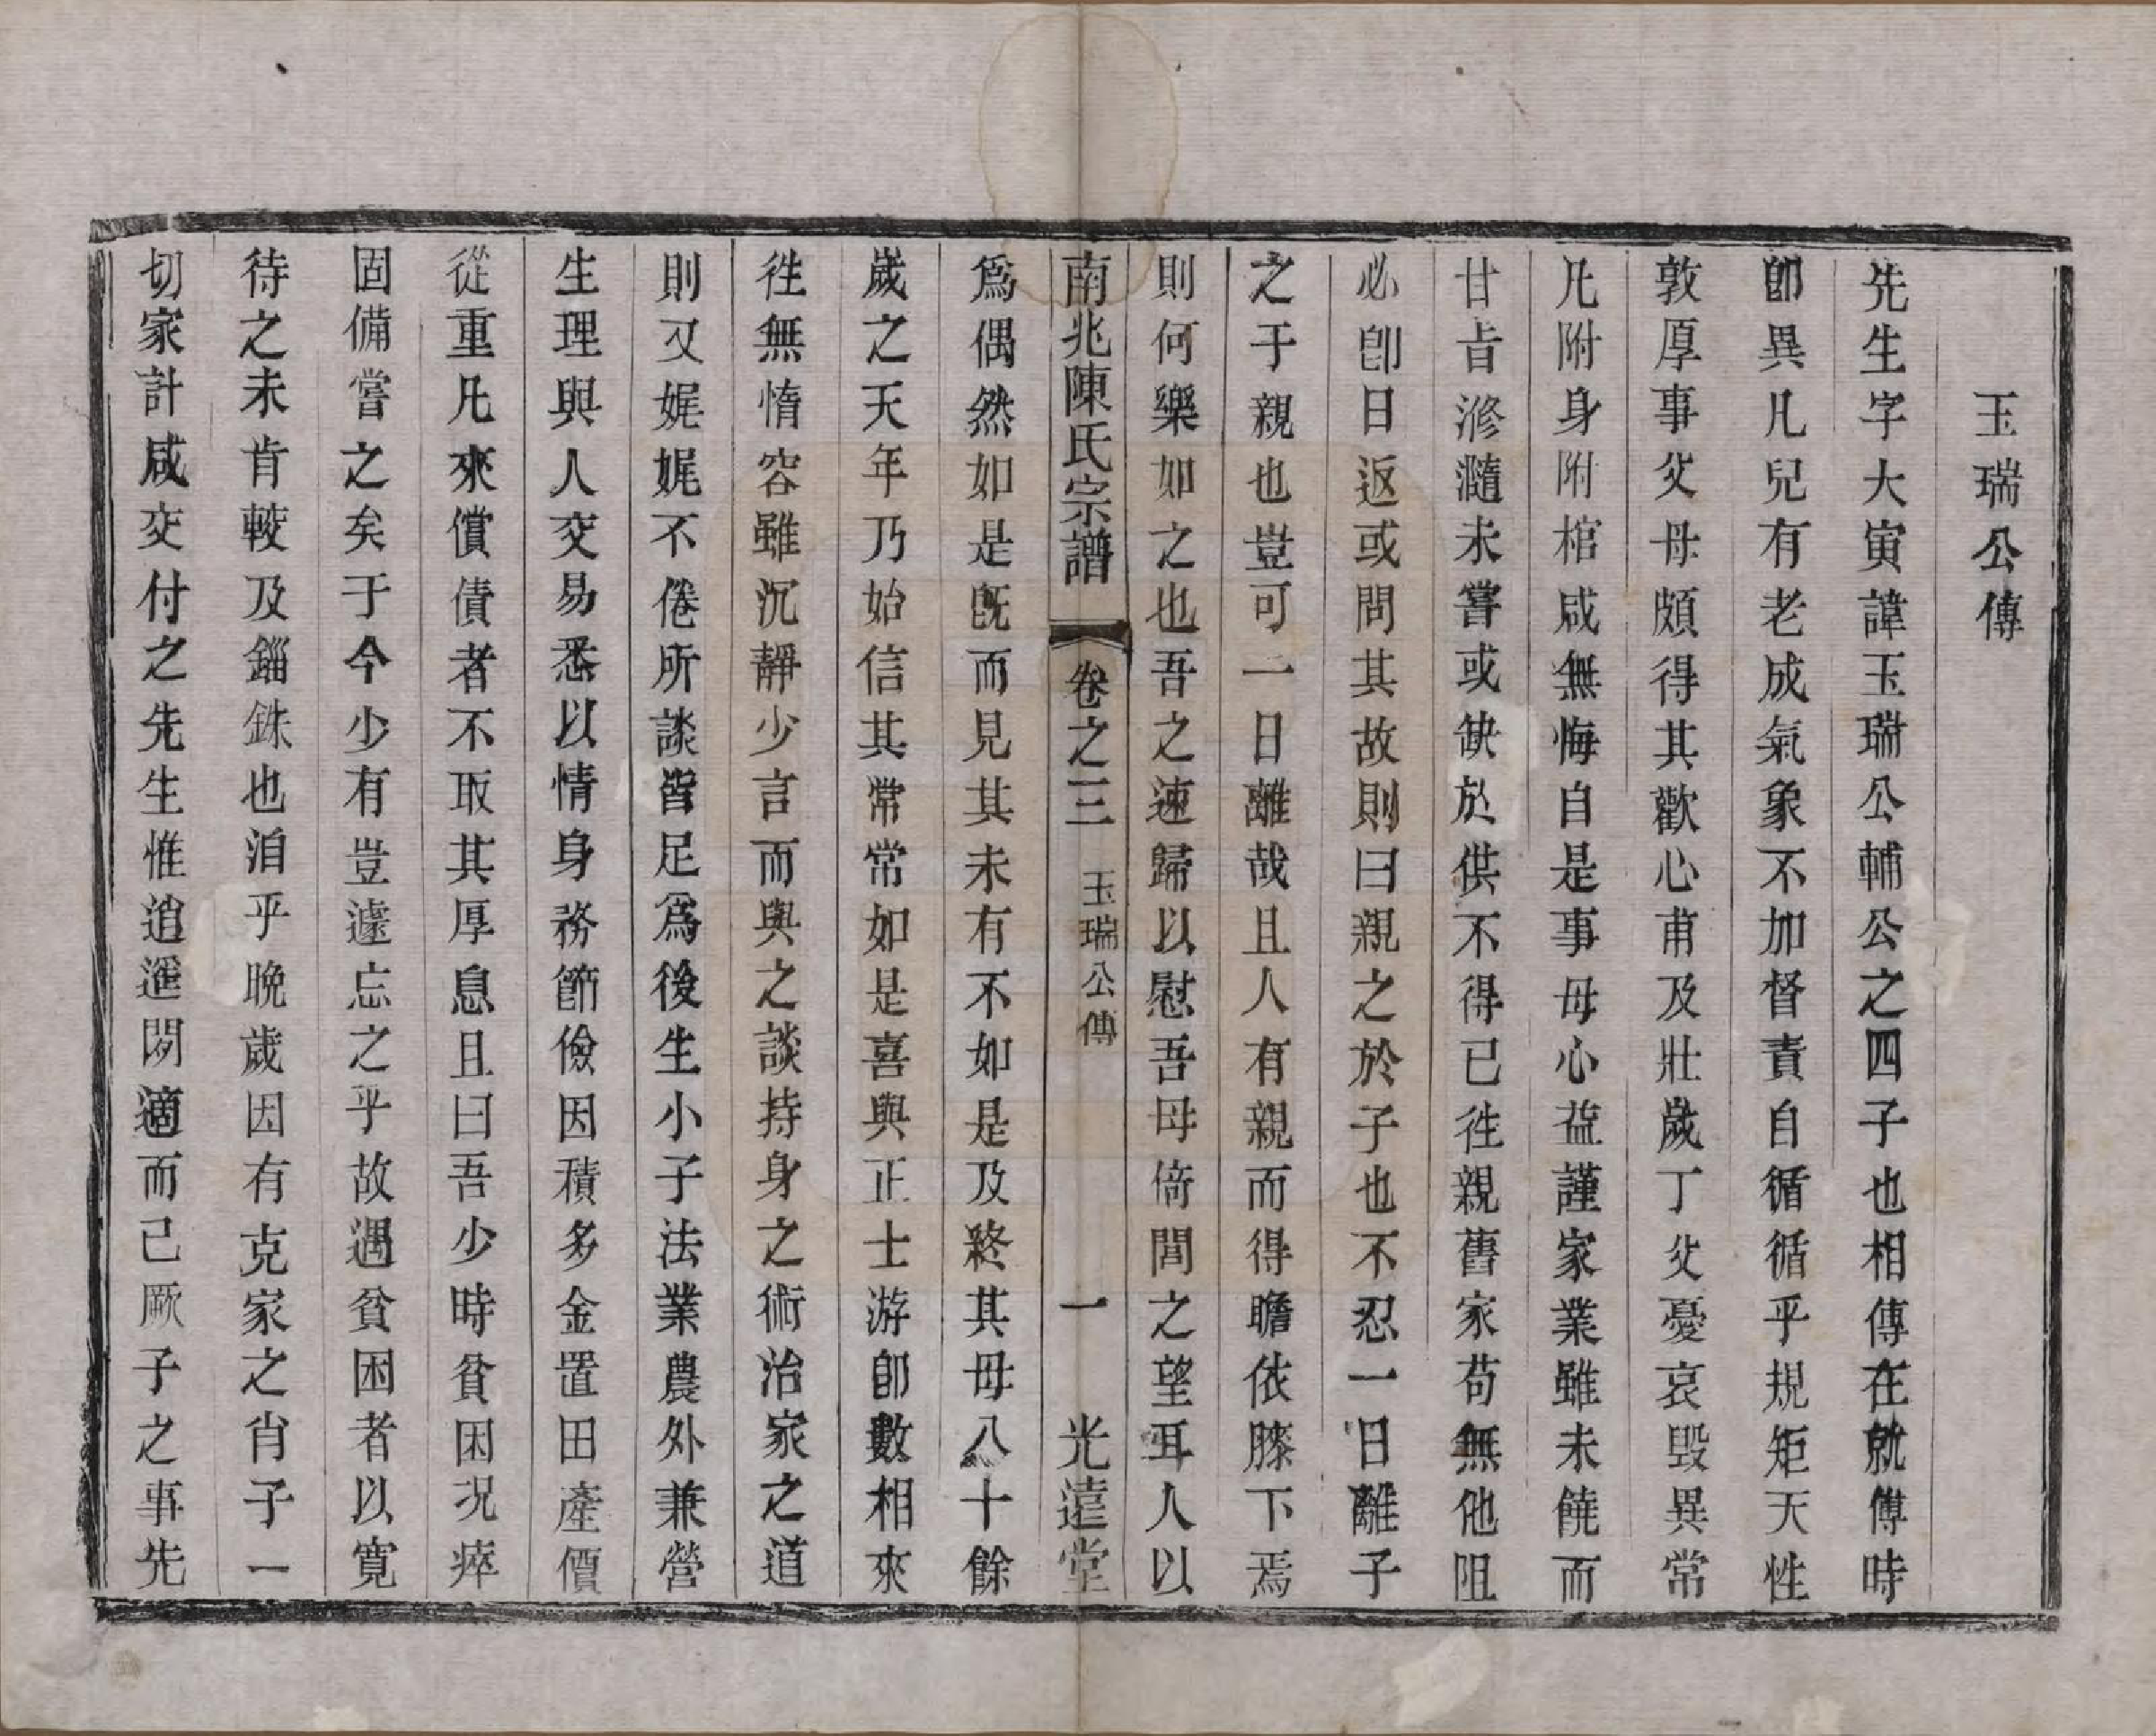 玉瑞公傳
先生字大寅諱玉瑞公輔公之四子也相傳在就傅時
卽異凡兒有老成氣象不加督責自循循乎規矩天性
敦厚事父母頗得其歡心甫及壯歲丁父憂哀毀異常
凡附身附棺咸無悔自是事母心益謹家業雖未饒而
甘旨滫瀡未嘗或缺於供不得已徃親舊家苟無他阻
必卽日返或問其故則曰親之於子也不忍一日離子
之于親也豈可一日離哉且人有親而得瞻依膝下焉
則何樂如之也吾之速歸以慰吾母倚閭之望耳人以
南兆陳氏宗譜 卷之三 玉瑞公傳 一 光遠堂
爲偶然如是旣而見其未有不如是及終其母八十餘
歲之天年乃始信其常常如是喜與正士游卽數相來
徃無惰容雖沉靜少言而與之談持身之術治家之道
則又娓娓不倦所談皆足爲後生小子法業農外兼營
生理與人交易悉以情身務節儉因積多金置田產價
從重凡來償債者不取其厚息且曰吾少時貧困況瘁
固備嘗之矣于今少有豈遽忘之乎故遇貧困者以寬
待之未肯較及錙銖也洎乎晚歲因有克家之肖子一
切家計咸交付之先生惟逍遙閒適而已厥子之事先